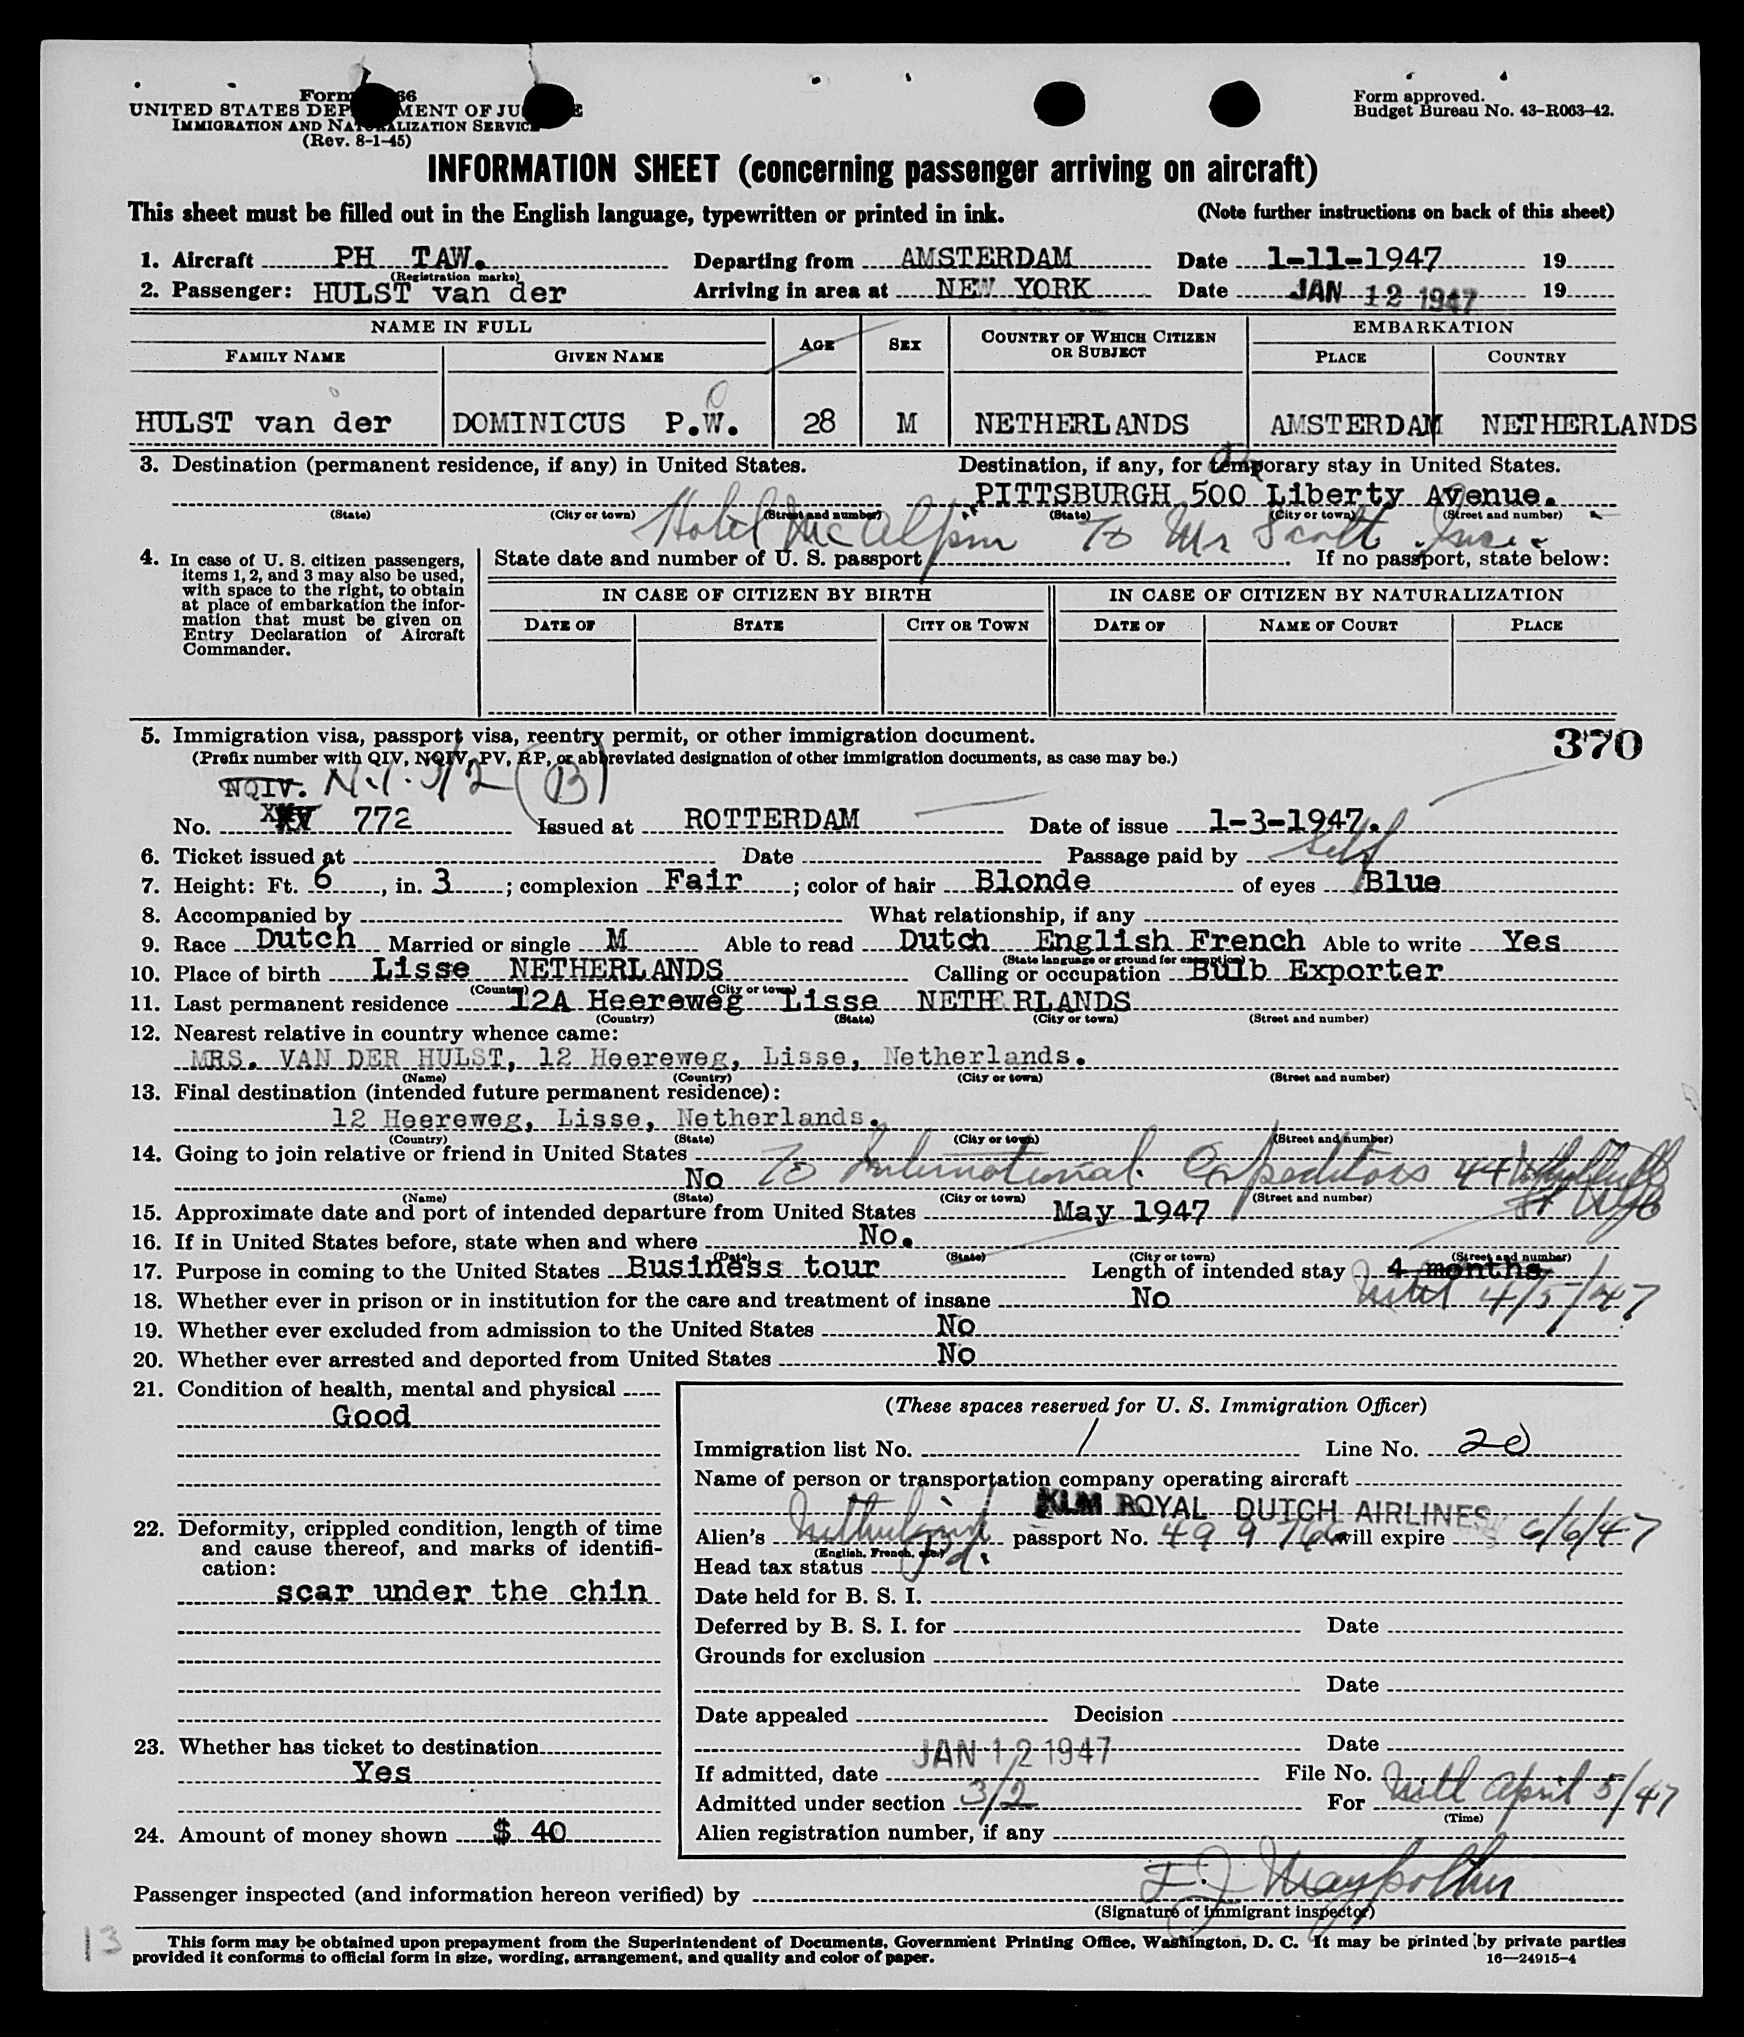 Form 66
UNITED STATES DEP MENT OF JU E
IMMIGRATION AND NATURALIZATION SERVICE
(Rev. 8-1-45)
Form approved.
Budget Bureau No. 43-R063-42.
INFORMATION SHEET (concerning passenger arriving on aircraft)
This sheet must be filled out in the English language, typewritten or printed in ink. (Note further instructions on back of this sheet)
1. Aircraft PH TAW. Departing from AMSTERDAM Date 1-11-1947 19
(Registration marks)
2. Passenger: HULST van der Arriving in area at NEW YORK Date JAN 12 1947 19
NAME IN FULL AGE SEX COUNTRY OF WHICH CITIZEN OR SUBJECT EMBARKATION
FAMILY NAME GIVEN NAME PLACE COUNTRY
HULST van der DOMINICUS P.W. 28 M NETHERLANDS AMSTERDAM NETHERLANDS
3. Destination (permanent residence, if any) in United States. Destination, if any, for temporary stay in United States.
PITTSBURGH 500 Liberty Avenue.
(State) (City or town) (Street and number) (State) (City or town) (Street and number)
Hotel McAlpin To Mr Scott
4. In case of U. S. citizen passengers, items 1, 2, and 3 may also be used, with space to the right, to obtain at place of embarkation the information that must be given on Entry Declaration of Aircraft Commander.
State date and number of U. S. passport If no passport, state below:
IN CASE OF CITIZEN BY BIRTH IN CASE OF CITIZEN BY NATURALIZATION
DATE OF STATE CITY OR TOWN DATE OF NAME OF COURT PLACE
5. Immigration visa, passport visa, reentry permit, or other immigration document.
370
(Prefix number with QIV, NQIV, PV, RP, or abbreviated designation of other immigration documents, as case may be.)
NQIV. N.I. 3/2 (B)
No. 772 Issued at ROTTERDAM Date of issue 1-3-1947.
6. Ticket issued at Date Passage paid by Self
7. Height: Ft. 6, in. 3; complexion Fair; color of hair Blonde of eyes Blue
8. Accompanied by What relationship, if any
9. Race Dutch Married or single M Able to read Dutch English French Able to write Yes
(State language or ground for exemption)
10. Place of birth Lisse NETHERLANDS Calling or occupation Bulb Exporter
(Country) (City or town)
11. Last permanent residence 12A Heereweg Lisse NETH RLANDS
(Country) (State) (City or town) (Street and number)
12. Nearest relative in country whence came:
MRS. VAN DER HULST, 12 Heereweg, Lisse, Netherlands.
(Name) (Country) (City or town) (Street and number)
13. Final destination (intended future permanent residence):
12 Heereweg, Lisse, Netherlands.
(Country) (State) (City or town) (Street and number)
14. Going to join relative or friend in United States
No To International Expeditors 44 Whitehall St NYC
(Name) (State) (City or town) (Street and number)
15. Approximate date and port of intended departure from United States May 1947
16. If in United States before, state when and where No.
(Date) (State) (City or town) (Street and number)
17. Purpose in coming to the United States Business tour Length of intended stay 4 months
until 4/5/47
18. Whether ever in prison or in institution for the care and treatment of insane No
19. Whether ever excluded from admission to the United States No
20. Whether ever arrested and deported from United States No
21. Condition of health, mental and physical
Good
22. Deformity, crippled condition, length of time and cause thereof, and marks of identification:
scar under the chin
23. Whether has ticket to destination
Yes
24. Amount of money shown $ 40
(These spaces reserved for U. S. Immigration Officer)
Immigration list No. 1 Line No. 20
Name of person or transportation company operating aircraft
KLM ROYAL DUTCH AIRLINES
Alien's Netherland passport No. will expire 6/6/47
(English, French, etc.)
Head tax status Pd.
Date held for B. S. I.
Deferred by B. S. I. for Date
Grounds for exclusion
Date
Date appealed Decision
Date
If admitted, date JAN 12 1947 File No.
Admitted under section 3/2 For until April 5/47
(Time)
Alien registration number, if any
Passenger inspected (and information hereon verified) by
(Signature of immigrant inspector)
13
This form may be obtained upon prepayment from the Superintendent of Documents, Government Printing Office, Washington, D. C. It may be printed by private parties
provided it conforms to official form in size, wording, arrangement, and quality and color of paper.
16—24915-4